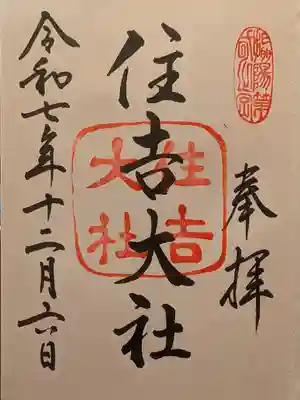 奉拝
住吉大社
住吉大社
令和七年十二月六日